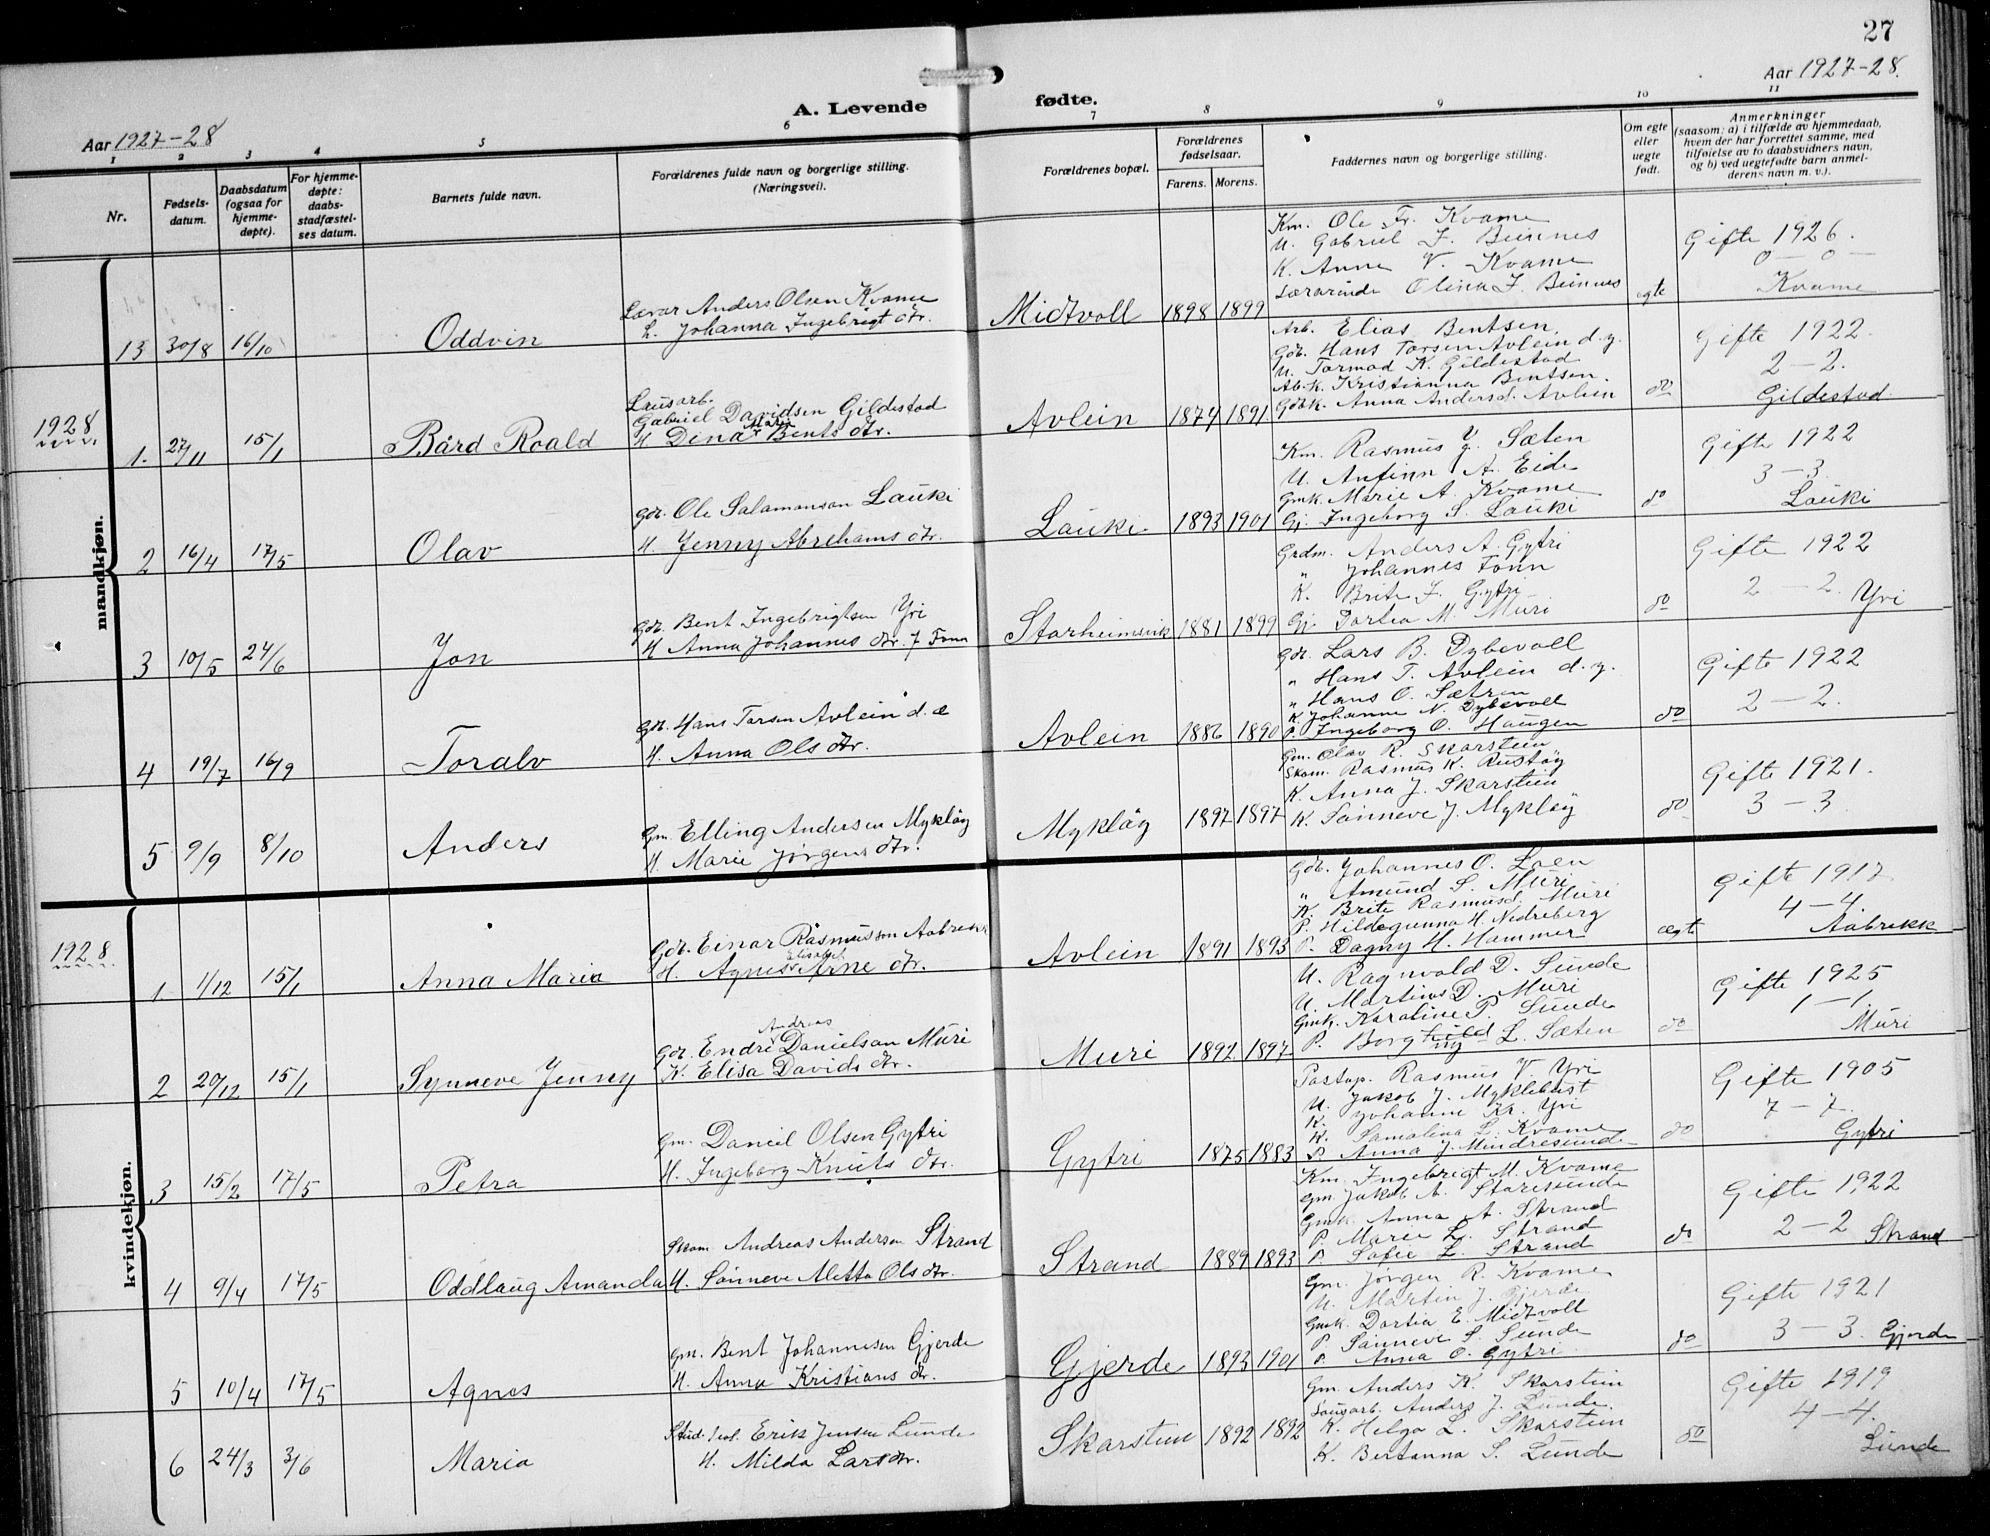 27
Aar 1927-28
A. Levende fødte.
Aar 1927-28.
1 2 3 4 5 6 7 8 9 10 11
Nr.
Fødsels-
datum.
Daabsdatum
(ogsaa for
hjemme-
døpte).
For hjemme-
døpte:
daabs-
stadfæstel-
ses datum.
Barnets fulde navn.
Forældrenes fulde navn og borgerlige stilling.
(Næringsvei).
Forældrenes bopæl.
Forældrenes
fødselsaar.
Farens. Morens.
Faddernes navn og borgerlige stilling.
Om egte
eller
uegte
født.
Anmerkninger
(saasom: a) i tilfælde av hjemmedaab,
hvem der har forrettet samme, med
tilføielse av to daabsvidners navn,
og b) ved uegtefødte barn anmel-
derens navn m. v.).
mandkjøn.
13 30/8 16/10 Oddvin
Lærar Anders Olsen Kvame
h. Johanna Ingebrigt dtr.
Midtvoll 1898 1899
Km. Ole Fr. Kvame
U. Gabriel J. Beinnes
K. Anne V. Kvame
Lærarinde Olina J. Beinnes
egte
Gifte 1926.
0 - 0 -
Kvame
1928
1. 27/11 15/1 Bård Roald
Lausarb.
Gabriel Davidsen Gildestad
H Dina Marie Bents dtr.
Avlein 1874 1891
Arb. Elias Bentsen.
Gdb. Hans Torsen Avlein d. y.
U. Tormod K. Gildestad
Ab.k. Kristianna Bentsen.
Gdbk. Anna Andersd. Avlein
do
Gifte 1922
2 - 2.
Gildestad
2 16/4 17/5 Olav
Gdb. Ole Salamonson Lauki
H. Jenny Abrehams dtr.
Lauki 1893 1901
Km. Rasmus J. Sæten
U. Anfinn A. Eide
Gmk. Marie A. Kvame
Gj. Ingeborg S. Lauki
do
Gifte 1922
3 - 3
Lauki
3 10/5 24/6 Jon
Gdb. Bent Ingebrigtsen Yri
H Anna Johannes dtr. f. Tonn
Starheimsvik 1881 1899
Grdm. Anders A. Gytri
" Johannes Tonn
K. Brite J. Gytri
Gj. Dortea M. Muri
do
Gifte 1922
2 - 2. Yri
4 19/7 16/9 Toralv
Gdb. Hans Torsen Avlein d. e
H. Anna Ols dtr.
Avlein 1886 1890
Gdb. Lars B. Dybevoll
" Hans T. Avlein d. y.
" Hans O. Sætren
K. Johanne N. Dybevoll
P. Ingeborg O. Haugen
do
Gifte 1922
2 - 2.
5 9/9 8/10 Anders
Gm. Elling Andersen Mykløy
H. Marie Jørgens dtr.
Mykløy 1897 1897
Gm. Olav R. Skarstein
Skom. Rasmus K. Rustøy
K. Anna J. Skarstein
K. Sønneve J. Mykløy
do
Gifte 1921.
3 - 3
kvindekjøn.
1928
1 1/12 15/1 Anna Maria
Gdb. Einar Rasmusson Aabrekk
H. Agnes Elisabet Arne dtr.
Avlein 1891 1893
Gdb. Johannes O. Loen
" Amund S. Muri
K. Brite Rasmusd. Muri
P. Hildegunna H. Nedreberg
P. Dagny H. Hammer
egt
Gifte 1917
4 - 4.
Aabrekk
2 20/12 15/1 Synneve Jenny
Gdb. Endre Andreas Danielsan Muri
K. Elisa Davids dtr.
Muri 1892 1897
U. Ragnvald D. Sunde
U. Martinus D. Muri
Gmk. Karoline P. Sunde
P. Borghild L. Sæten
do
Gifte 1925
1 - 1.
Muri
3 15/2 17/5 Petra
Gm. Daniel Olsen Gytri
H. Ingeborg Knuts dtr.
Gytri 1875 1883
Postop. Rasmus V. Yri
U. Jakob J. Myklebust
K. Johanne Kr. Yri
K. Samalina L. Kvame
P. Anna J. Mindresunde
do
Gifte 1905
7 - 7.
Gytri
4 9/4 17/5 Oddlaug Amanda
Skom Andreas Andersen Strand
H. Sønneve Aletta Ols dtr.
Strand 1889 1893
Km. Ingebrigt M. Kvame
Gm. Jakob A. Staresunde
Gmk. Anna A. Strand
P. Marie L. Strand
P. Sofie L. Strand
do
Gifte 1922
2 - 2 Strand
5 10/4 17/5 Agnes
Gm. Bent Johannesen Gjerde
H. Anna Kristians dtr.
Gjerde 1893 1901
Gm. Jørgen R. Kvame
U. Martin J. Gjerde
Gmk. Dortia E. Midtvoll
P. Sønneve S. Sunde
P. Anna O. Gytri
do
Gifte 1921
3 - 3. Gjerde
6 24/3 3/6 Maria
Erik Jensen Lunde
H. Milda Lars dtr.
Skarstein 1892 1892
Gm. Anders K. Skarstein
Lausarb. Anders J. Lunde.
K. Helga L. Skarstein
K. Bertanna S. Lunde
do
Gifte 1919
4 - 4.
Lunde